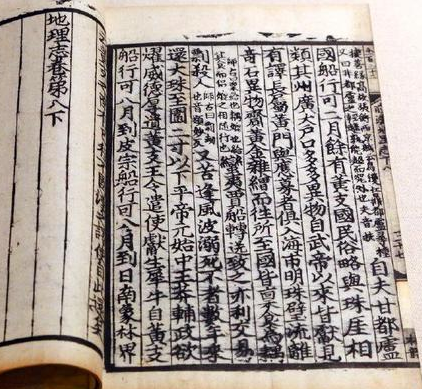 自夫甘都盧
國船行可二月餘有黃支國民俗略與珠崖相
類其州廣大戶口多多異物自武帝以來皆獻見
有譯長屬黃門與應募者俱入海市明珠璧流離
奇石異物齎黃金雜繒而往所至國皆稟食為耦
蠻夷賈船轉送致之亦利交易
剽殺人又苦逢風波溺死不者數年來
還大珠至圍二寸以下平帝元始中王莽輔政欲
燿威德厚遺黃支王令遣使獻生犀牛自黃支
船行可八月到皮宗船行可八月到日南象林界
地理志卷第八下